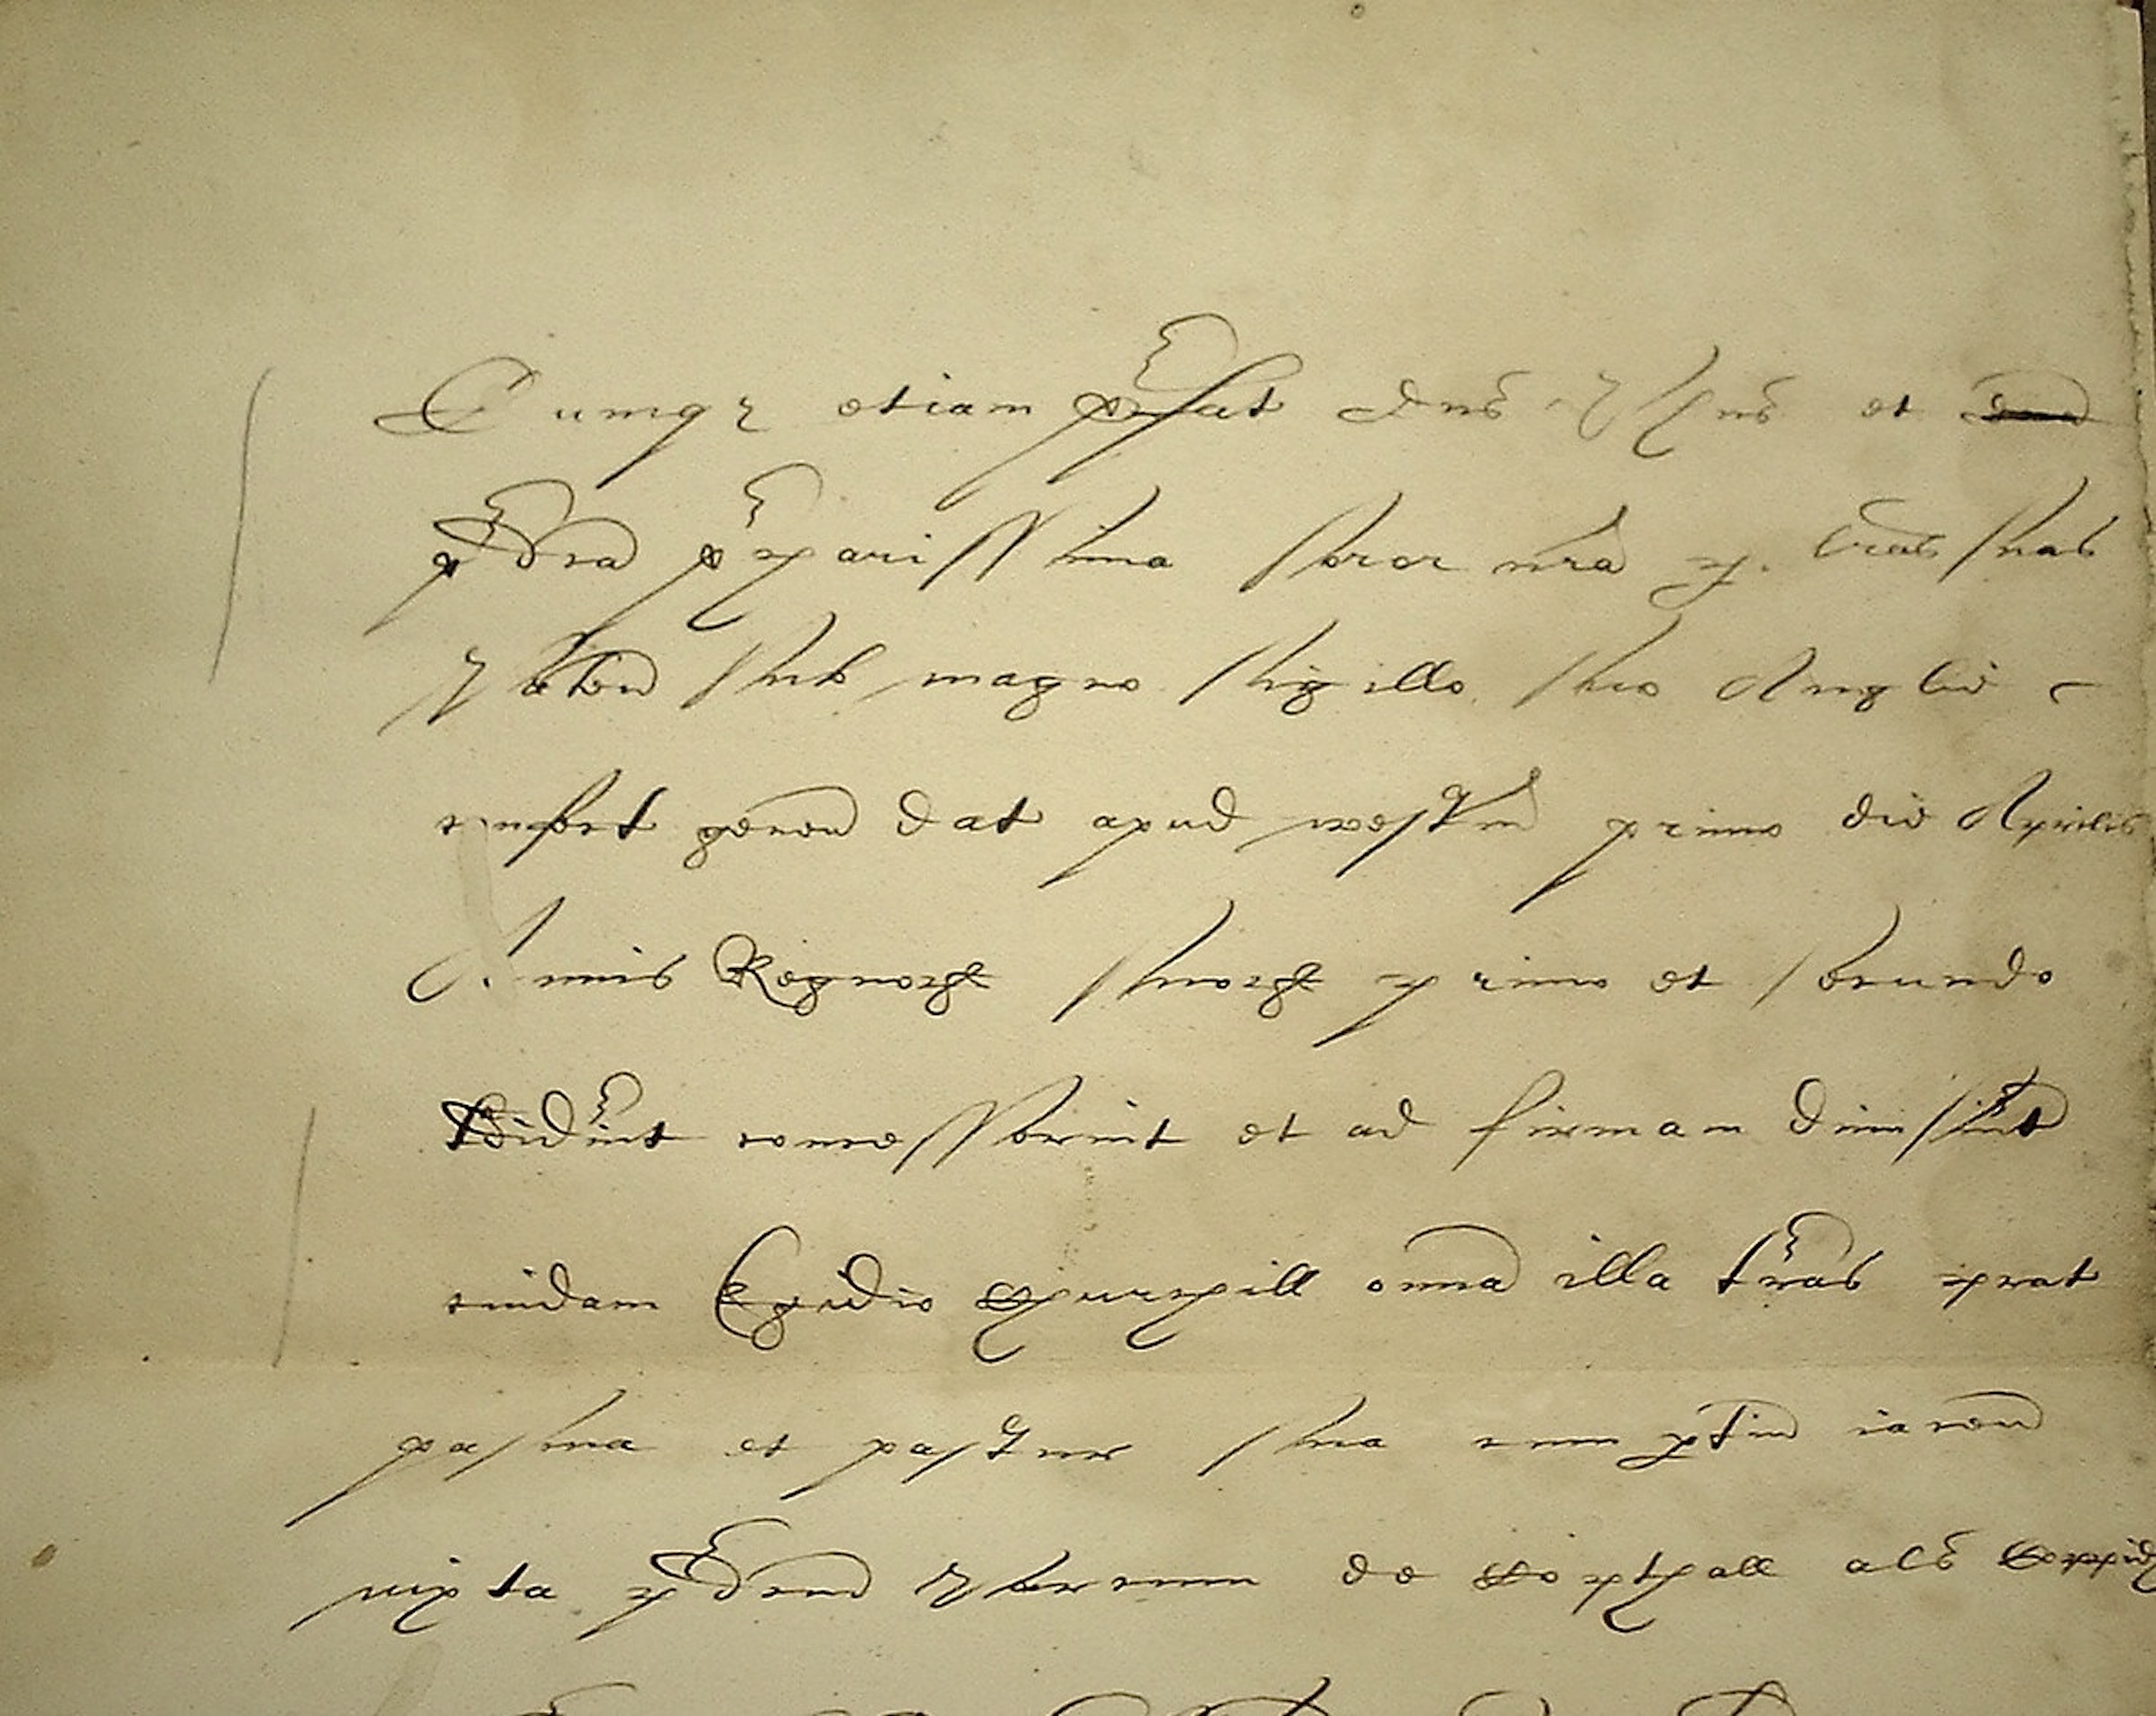 Cumq3 etiam prefat Dns Phus et
pdca prcharissima Soror nra p lras suas
Paten sub magno Sigillo suo Anglie
confect geren dat apud westm primo die Aprilis
Annis Regnor suor primo et secundo
tradidint concesserint et ad firmam dimisint
cuidam Egidio Spurgill omia illa terras prat
pastua et pastur sua cum ptin iacen
iuxta pdcm Parcum de Copthall als